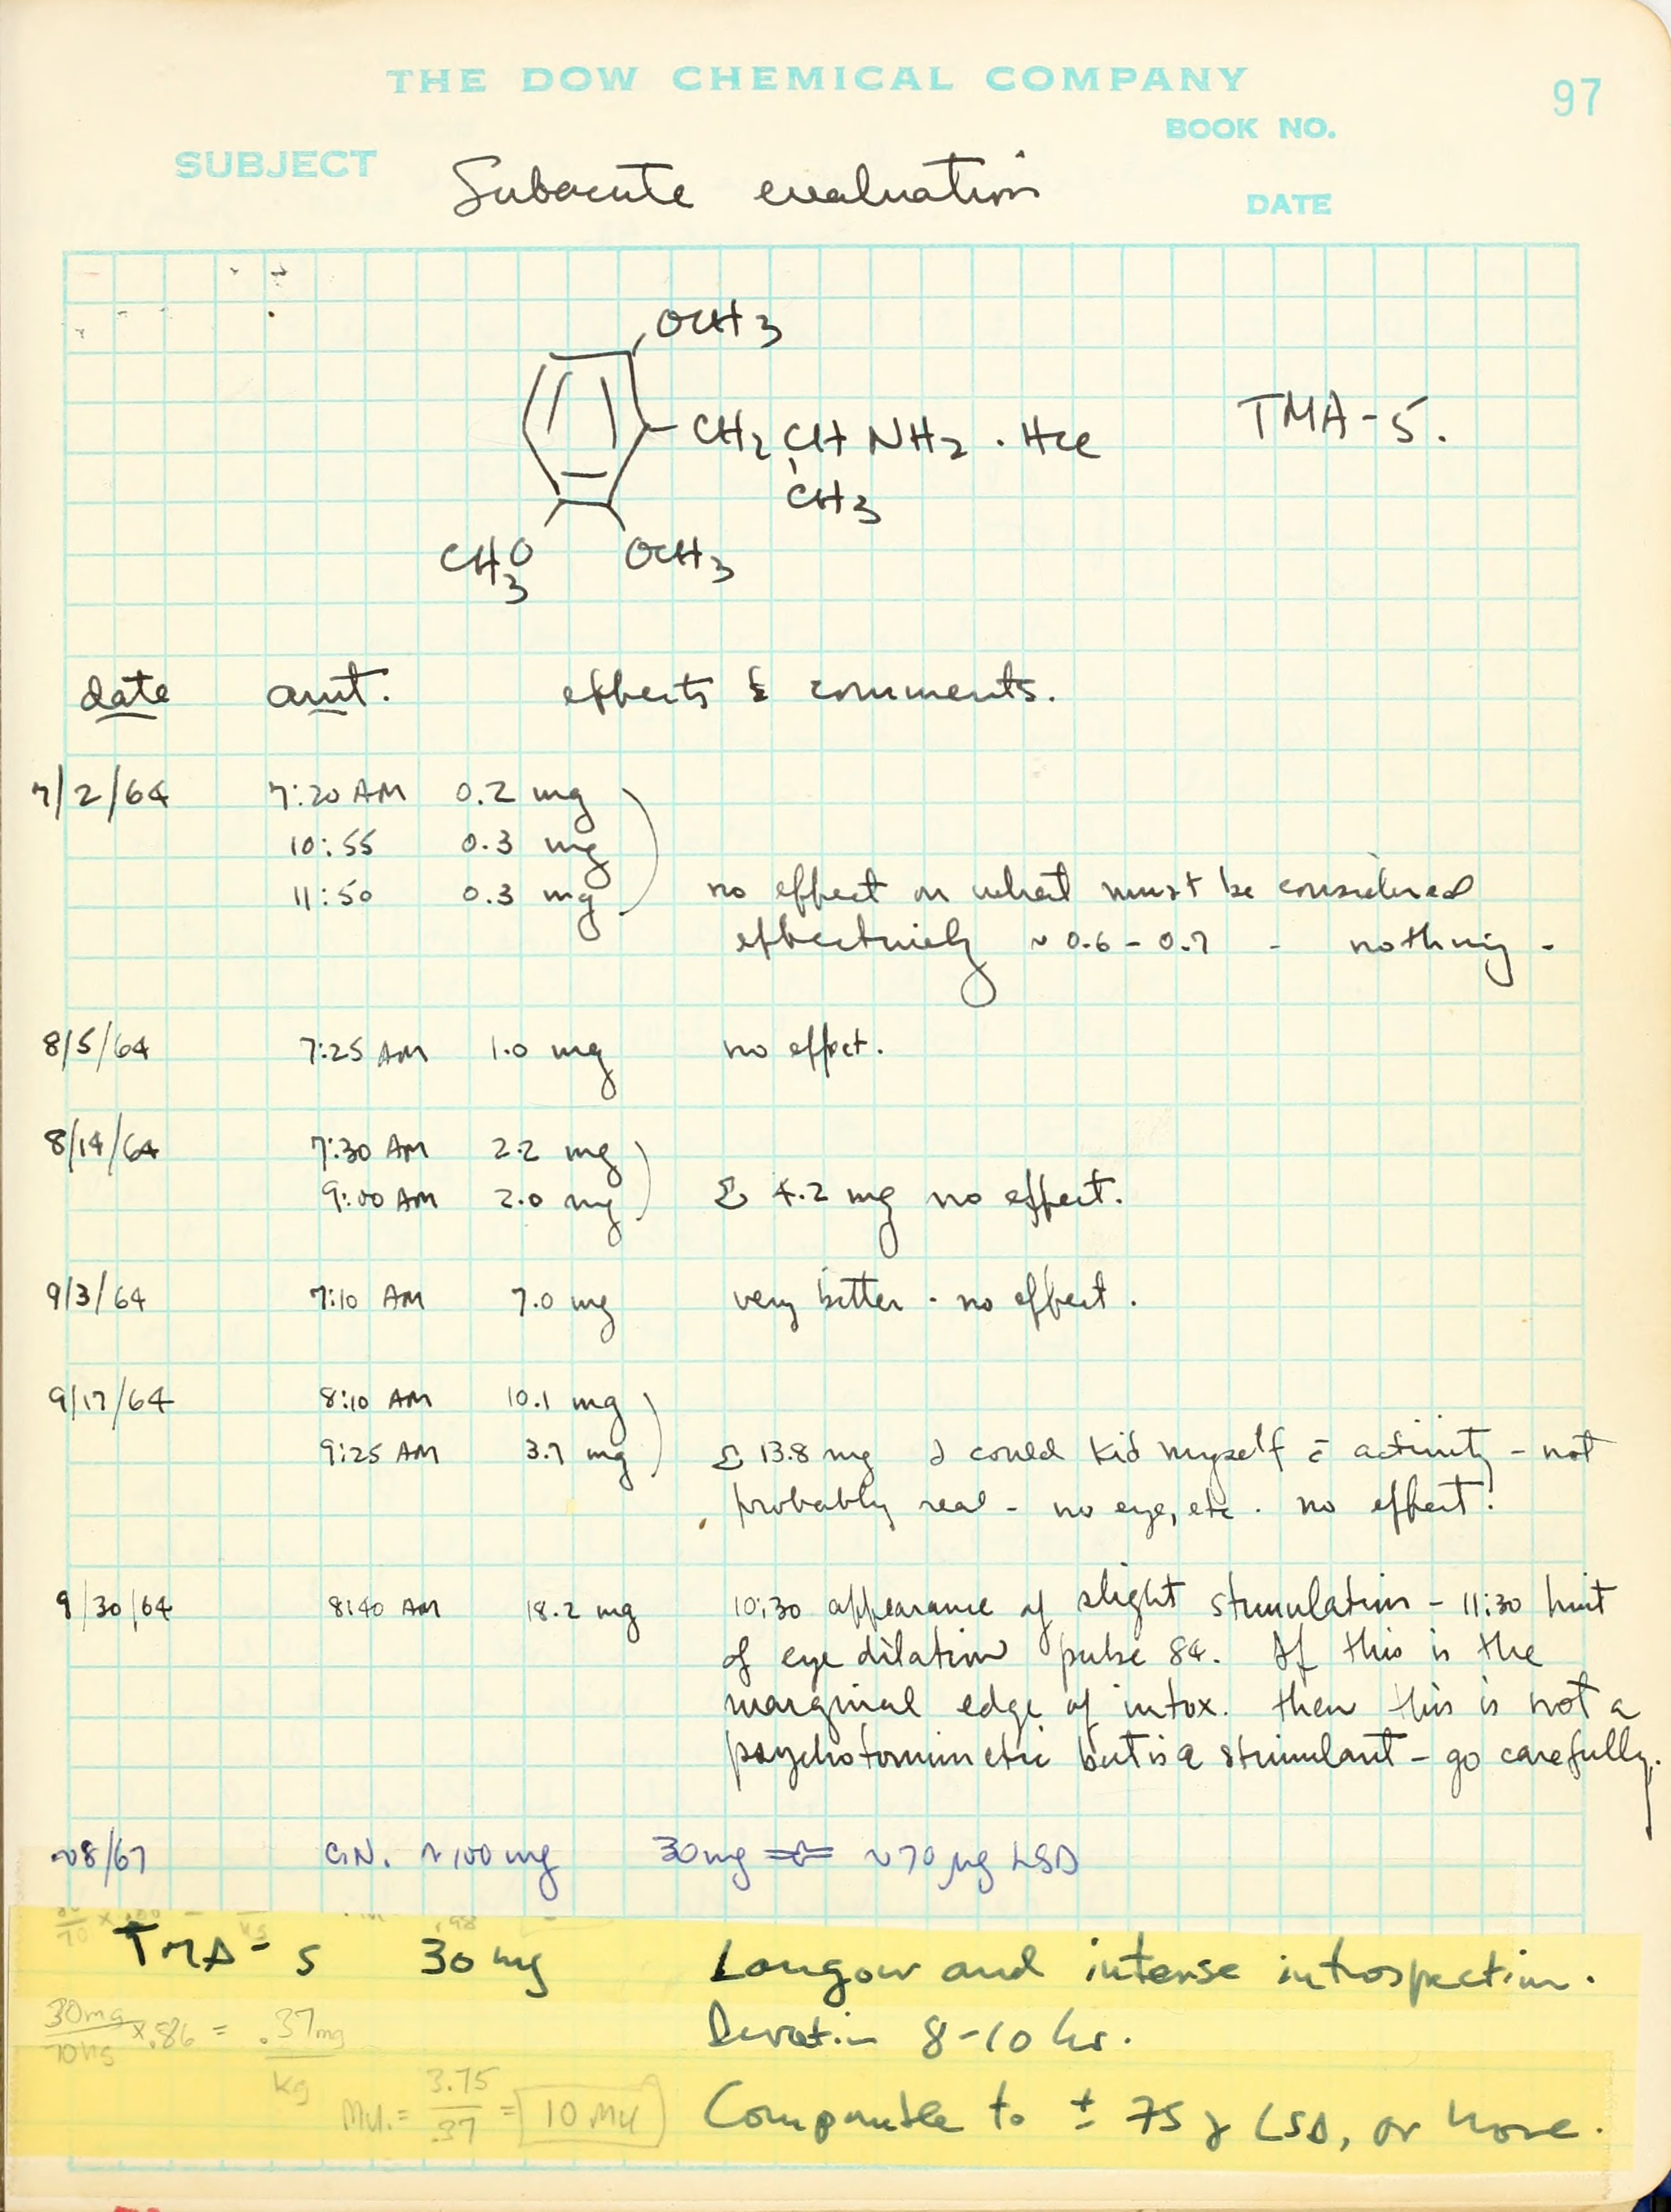 THE DOW CHEMICAL COMPANY
97
BOOK NO.
SUBJECT Subacute evaluation
DATE
OCH3
CH2 CH NH2 . HCl
CH3
TMA-5.
CH3O OCH3
date amt. effects & comments.
7/2/64 7:20 AM 0.2 mg
10:55 0.3 mg
11:50 0.3 mg no effect on what must be considered
effectively ~ 0.6 - 0.7 - nothing -
8/5/64 7:25 AM 1.0 mg no effect.
8/14/64 7:30 AM 2.2 mg
9:00 AM 2.0 mg Σ 4.2 mg no effect.
9/3/64 7:10 AM 7.0 mg very bitter - no effect.
9/17/64 8:10 AM 10.1 mg
9:25 AM 3.7 mg Σ 13.8 mg I could kid myself c̄ activity - not
probably real - no eye, etc. no effect!
9/30/64 8:40 AM 18.2 mg 10:30 appearance of slight stimulation - 11:30 hint
of eye dilation pulse 84. If this is the
marginal edge of intox. then this is not a
psychotomimetic but is a stimulant - go carefully.
~8/67 G.N. ~100 mg 30mg ~70 µg LSD
TMA-5 30 mg Langour and intense introspection.
30mg x .86 = .37mg
70 kg kg
Duration 8-10 hr.
M.U. = 3.75 = 10 MU
.37
Comparable to ± 75 γ LSD, or more.